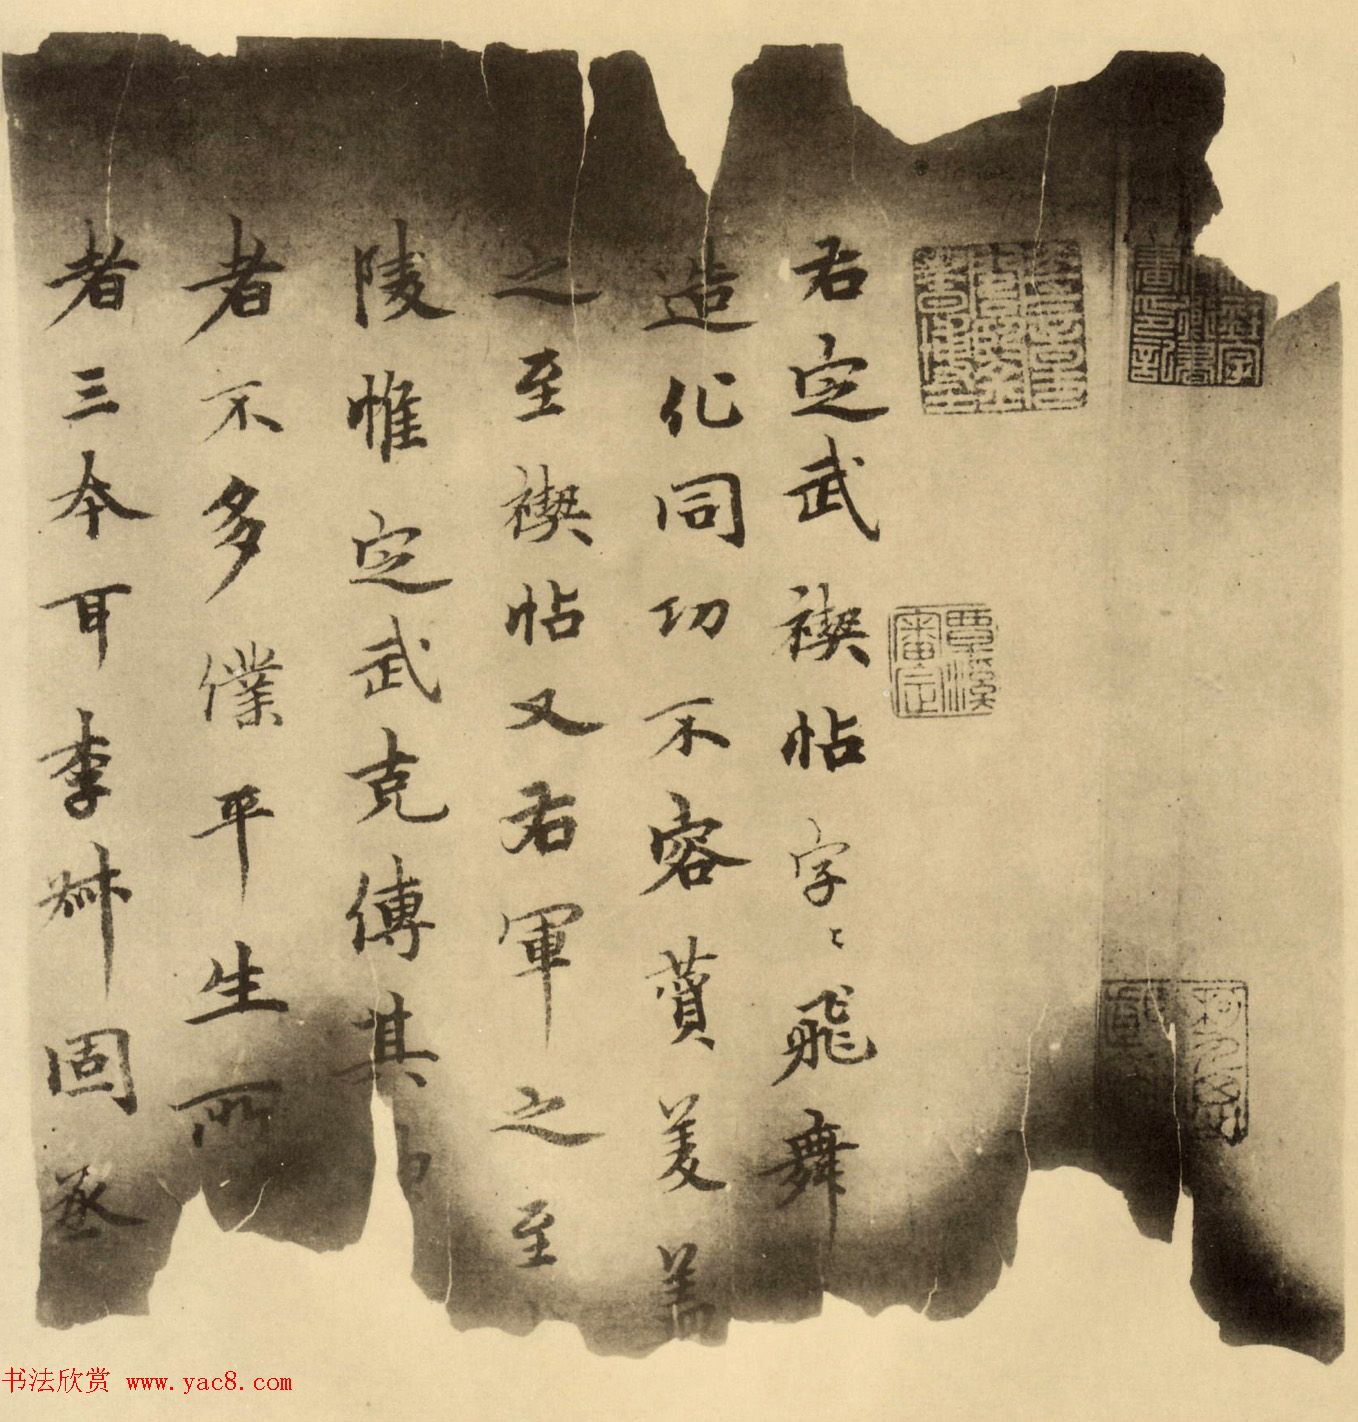 右定武禊帖字〻飛舞
造化同功不容賛美蓋
之至禊帖又右軍之至
陵惟定武克傳其
者不多僕平生所
者三本耳李叔固丞
覃溪審定
书法欣赏 www.yac8.com